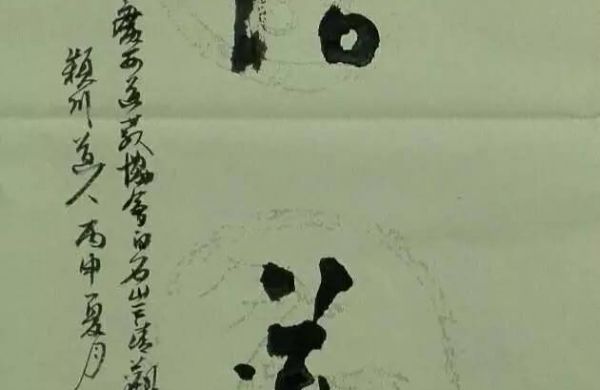 廣西道教協會白石山三清觀
穎川道人 丙申夏月